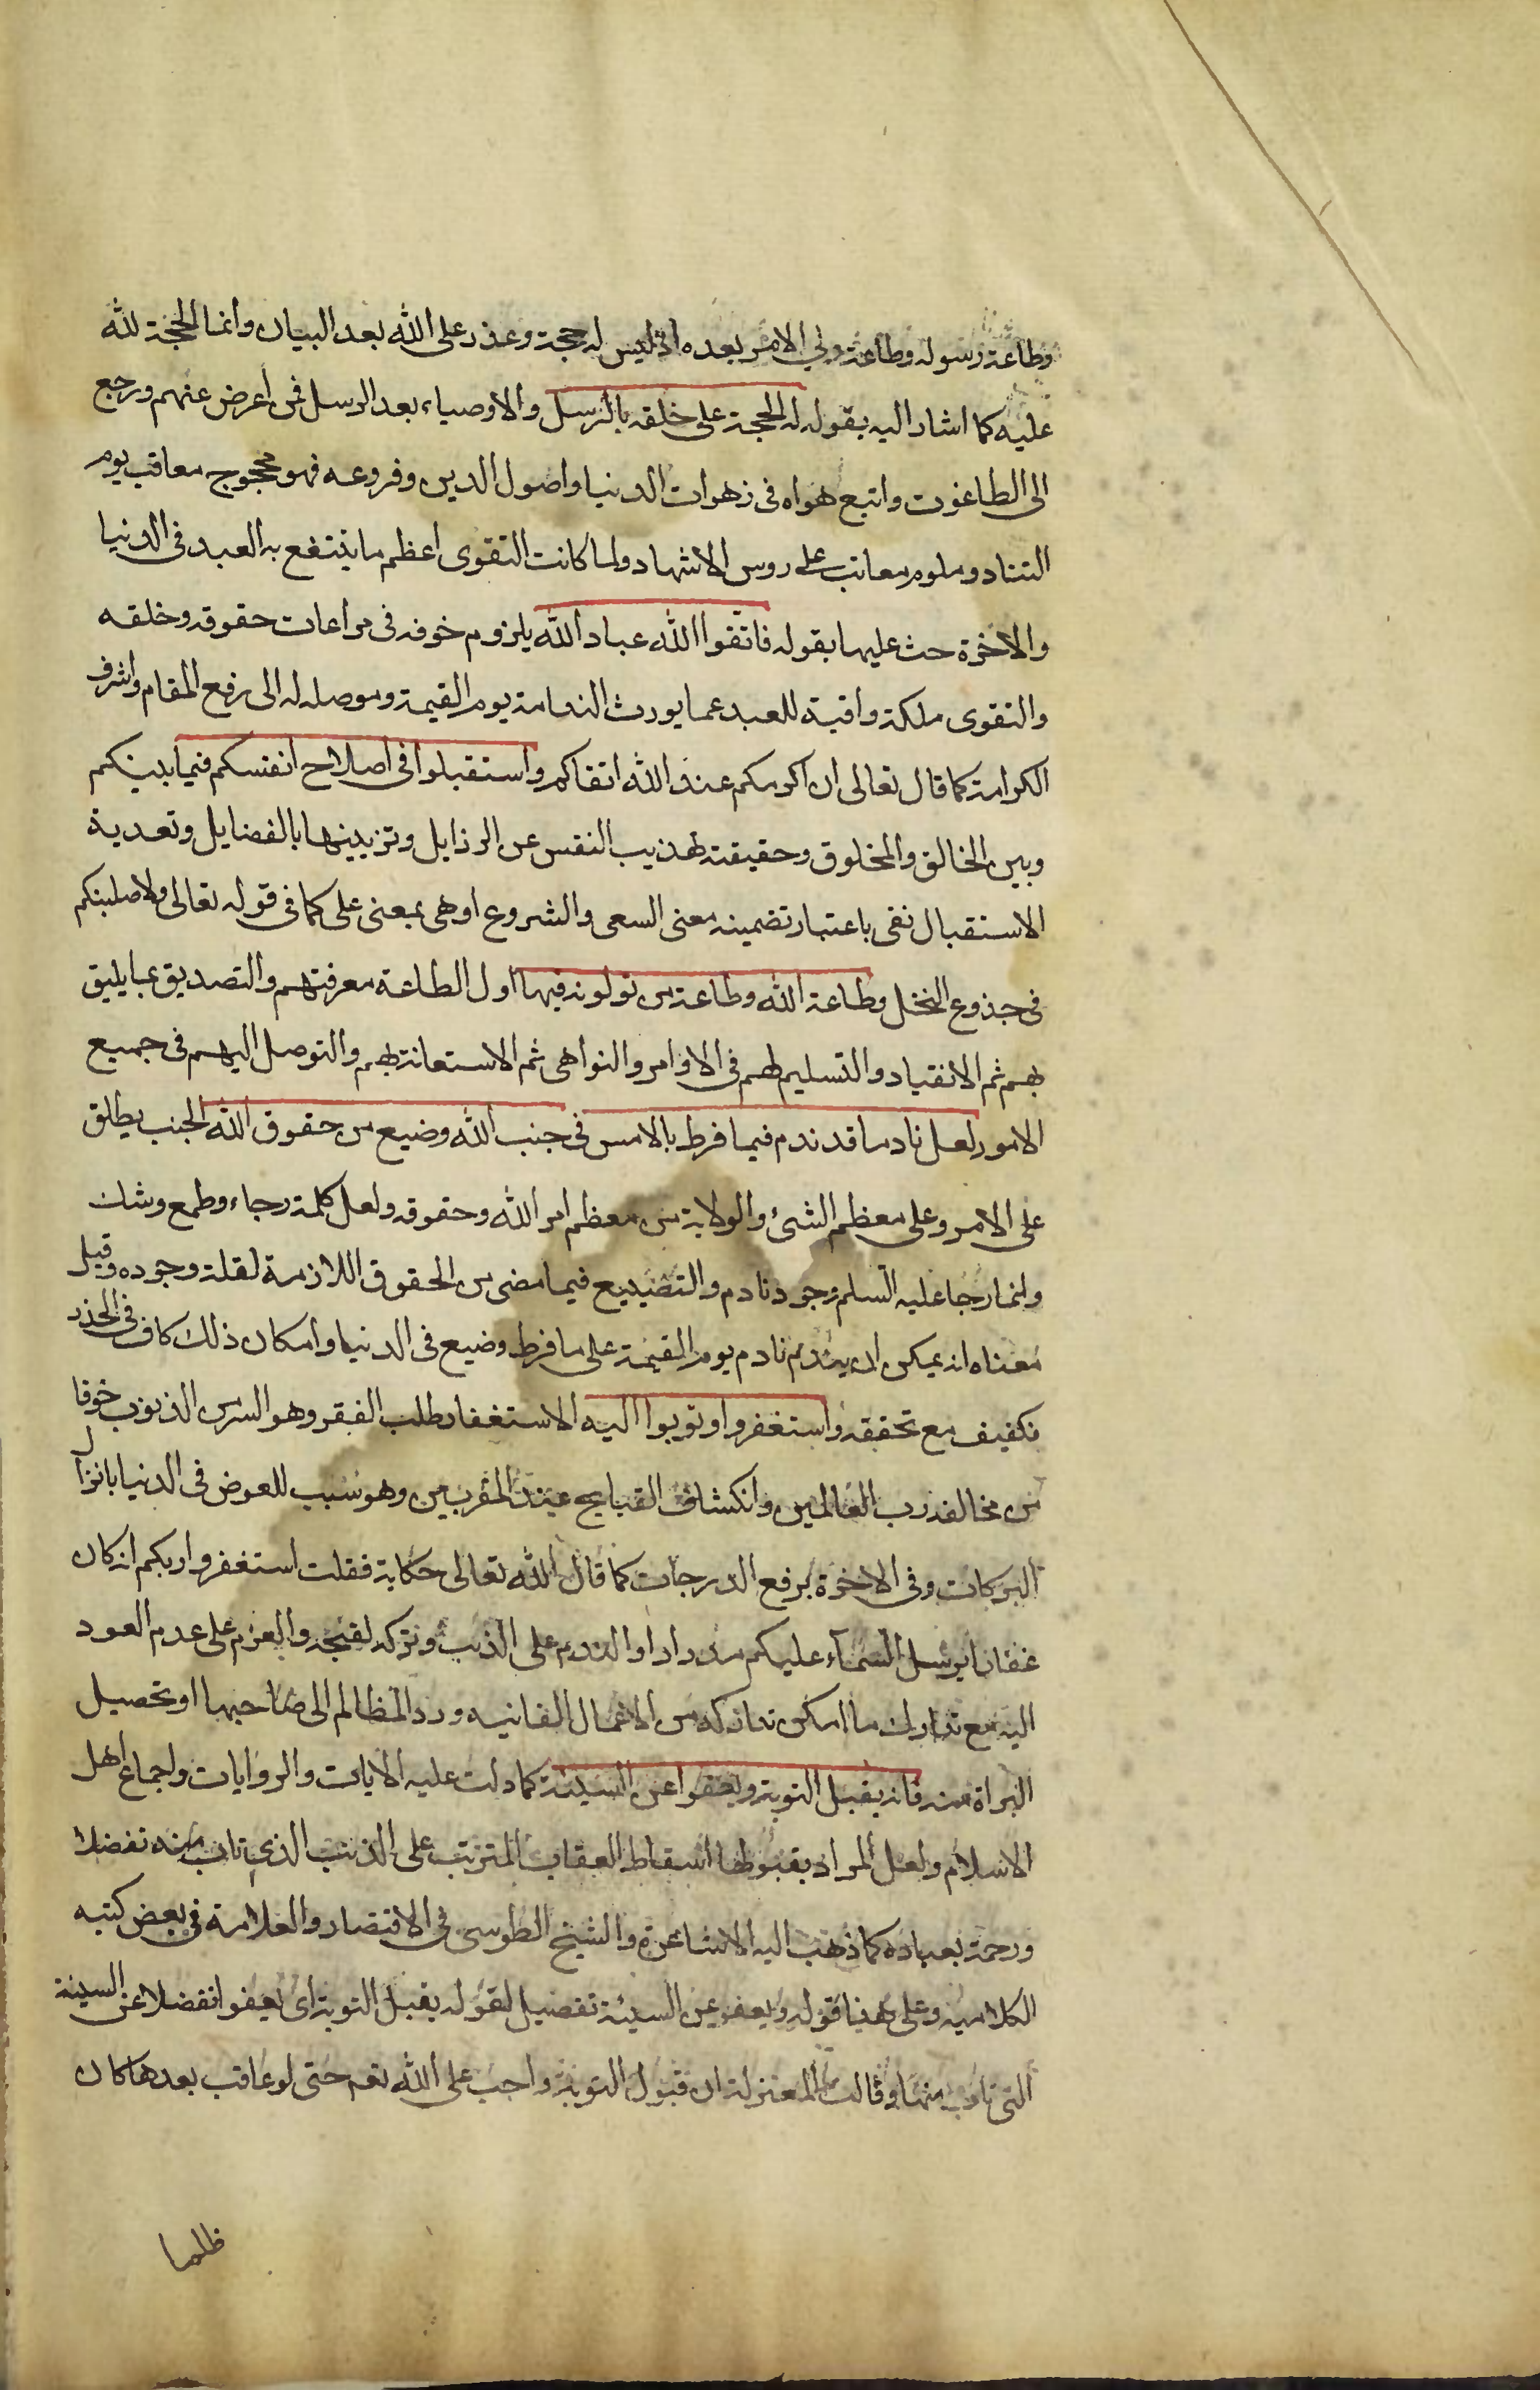 وطاعة رسوله وطاعة ولي الامر بعده اذ ليس له حجة وعذر على الله بعد البيان وانما الحجة لله
عليه كما اشار اليه بقوله له الحجة على خلقه بالرسل والاوصياء بعد الرسل فمن اعرض عنهم ورجع
الى الطاغوت واتبع هواه فى زهرات الدنيا واصول الدين وفروعه فهو محجوج معاقب يوم
التناد وملوم معاتب على روس الاشهاد ولما كانت التقوى اعظم ما ينتفع به العبد فى الدنيا
والاخرة حث عليها بقوله فاتقوا الله عباد الله يلزوم خوفه فى مراعات حقوقه وخلقه
والتقوى ملكة واقية للعبد عما يورث الندامة يوم القيمة وموصلة له الى رفيع المقام واشرف
الكرامة كما قال تعالى ان اكرمكم عند الله اتقاكم واستقبلوا فى اصلاح انفسكم فيما بينكم
وبين الخالق والمخلوق وحقيقته تهذيب النفس عن الرذايل وتزيينها بالفضايل وتعدية
الاستقبال بفى باعتبار تضمينه معنى السعى والشروع او هى بمعنى على كما فى قوله تعالى ولاصلبنكم
فى جذوع النخل وطاعة الله وطاعة من تولونه فيها اول الطاعة معرفتهم والتصديق بما يليق
بهم ثم الانقياد والتسليم لهم فى الاوامر والنواهى ثم الاستعانة بهم والتوصل اليهم فى جميع
الامور لعل نادما قد ندم فيما فرط بالامس فى جنب الله وضيع من حقوق الله الجنب يطلق
على الامر وعلى معظم الشئ والولاية من معظم امر الله وحقوقه ولعل كلمة رجاء وطمع وشك
وانما رجا عليه السلم وجود نادم والتضييع فيما مضى من الحقوق اللازمة لقلة وجوده وقيل
معناه انه يمكن ان يندم نادم يوم القيمة على ما فرط وضيع فى الدنيا وامكان ذلك كاف فى الحذر
فكيف مع تحققه واستغفروا وتوبوا اليه الاستغفار طلب الفقر وهو الستر من الذنوب خوفا
من مخالفة رب العالمين وانكشاف القبايح عند المقربين وهو سبب للعوض فى الدنيا بانزال
البركات وفى الاخرة برفع الدرجات كما قال الله تعالى حكاية فقلت استغفروا ربكم انه كان
غفارا يرسل السماء عليكم مدرارا والندم على الذنب وتركه لقبحه والعزم على عدم العود
اليه مع تدارك ما امكن تداركه من الاعمال الفانيه ورد المظالم الى صاحبها او تحصيل
البراة منه فانه يقبل التوبة ويعفوا عن السيئة كما دلت عليه الايات والروايات واجماع اهل
الاسلام ولعل المراد بقبولها اسقاط العقاب المترتب على الذنب الذى تاب منه تفضلا
ورحمة بعباده كما ذهب اليه الاشاعرة والشيخ الطوسى فى الاقتصار والعلامة فى بعض كتبه
الكلاميه وعلى هذا قوله ويعفو عن السيئة تفصيل لقوله يقبل التوبة اى يعفو اتفضلا عن السيئة
التى تاب منها وقالت المعتزلة ان قبول التوبة واجب على الله نعم حتى لو عاقب بعدها كان
ظلما